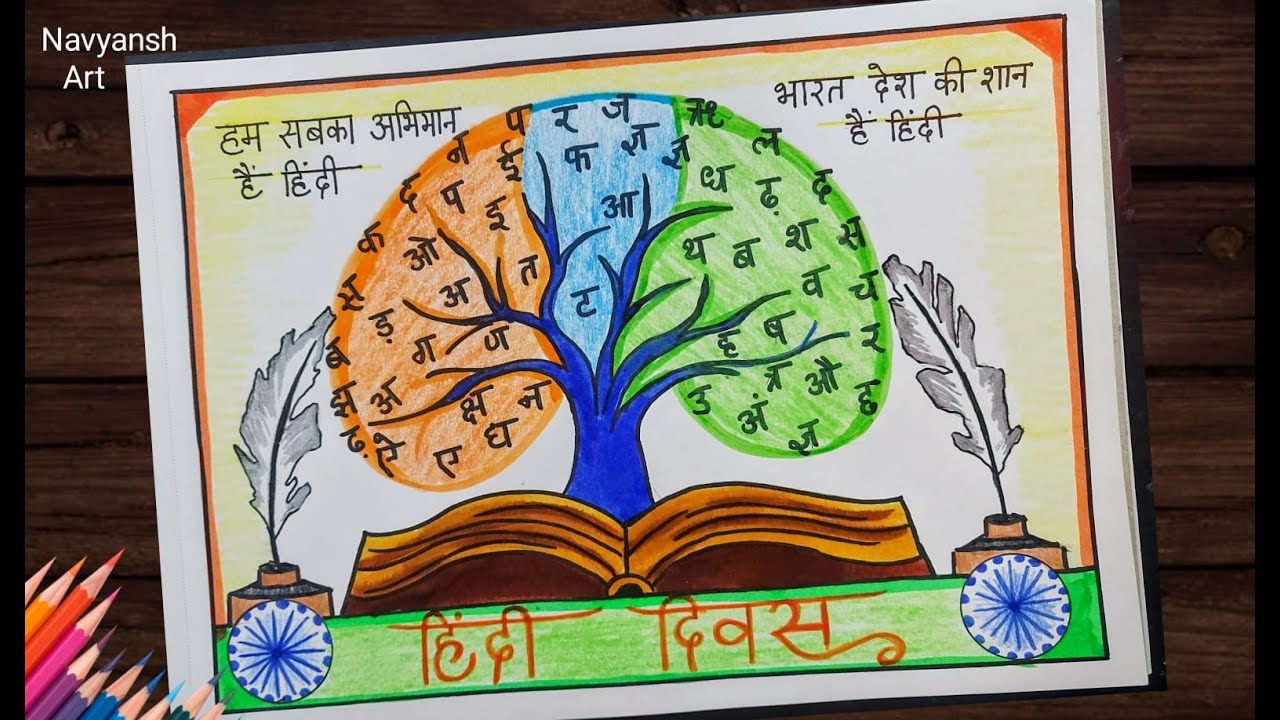 Navyansh
Art
हम सबका अभिमान
हैं हिंदी
भारत देश की शान
हैं हिंदी
प र ज ऋ
न ई फ ज्ञ ज्ञ ल
द प इ आ ध ढ़ द
क ओ त थ ब श स
स अ ट व च
ड़ ग ज ह ब र
ब अ क्ष न उ त्र औ
झ अं ढ
ढ़ ऐ ए ध ज्ञ
हिंदी दिवस